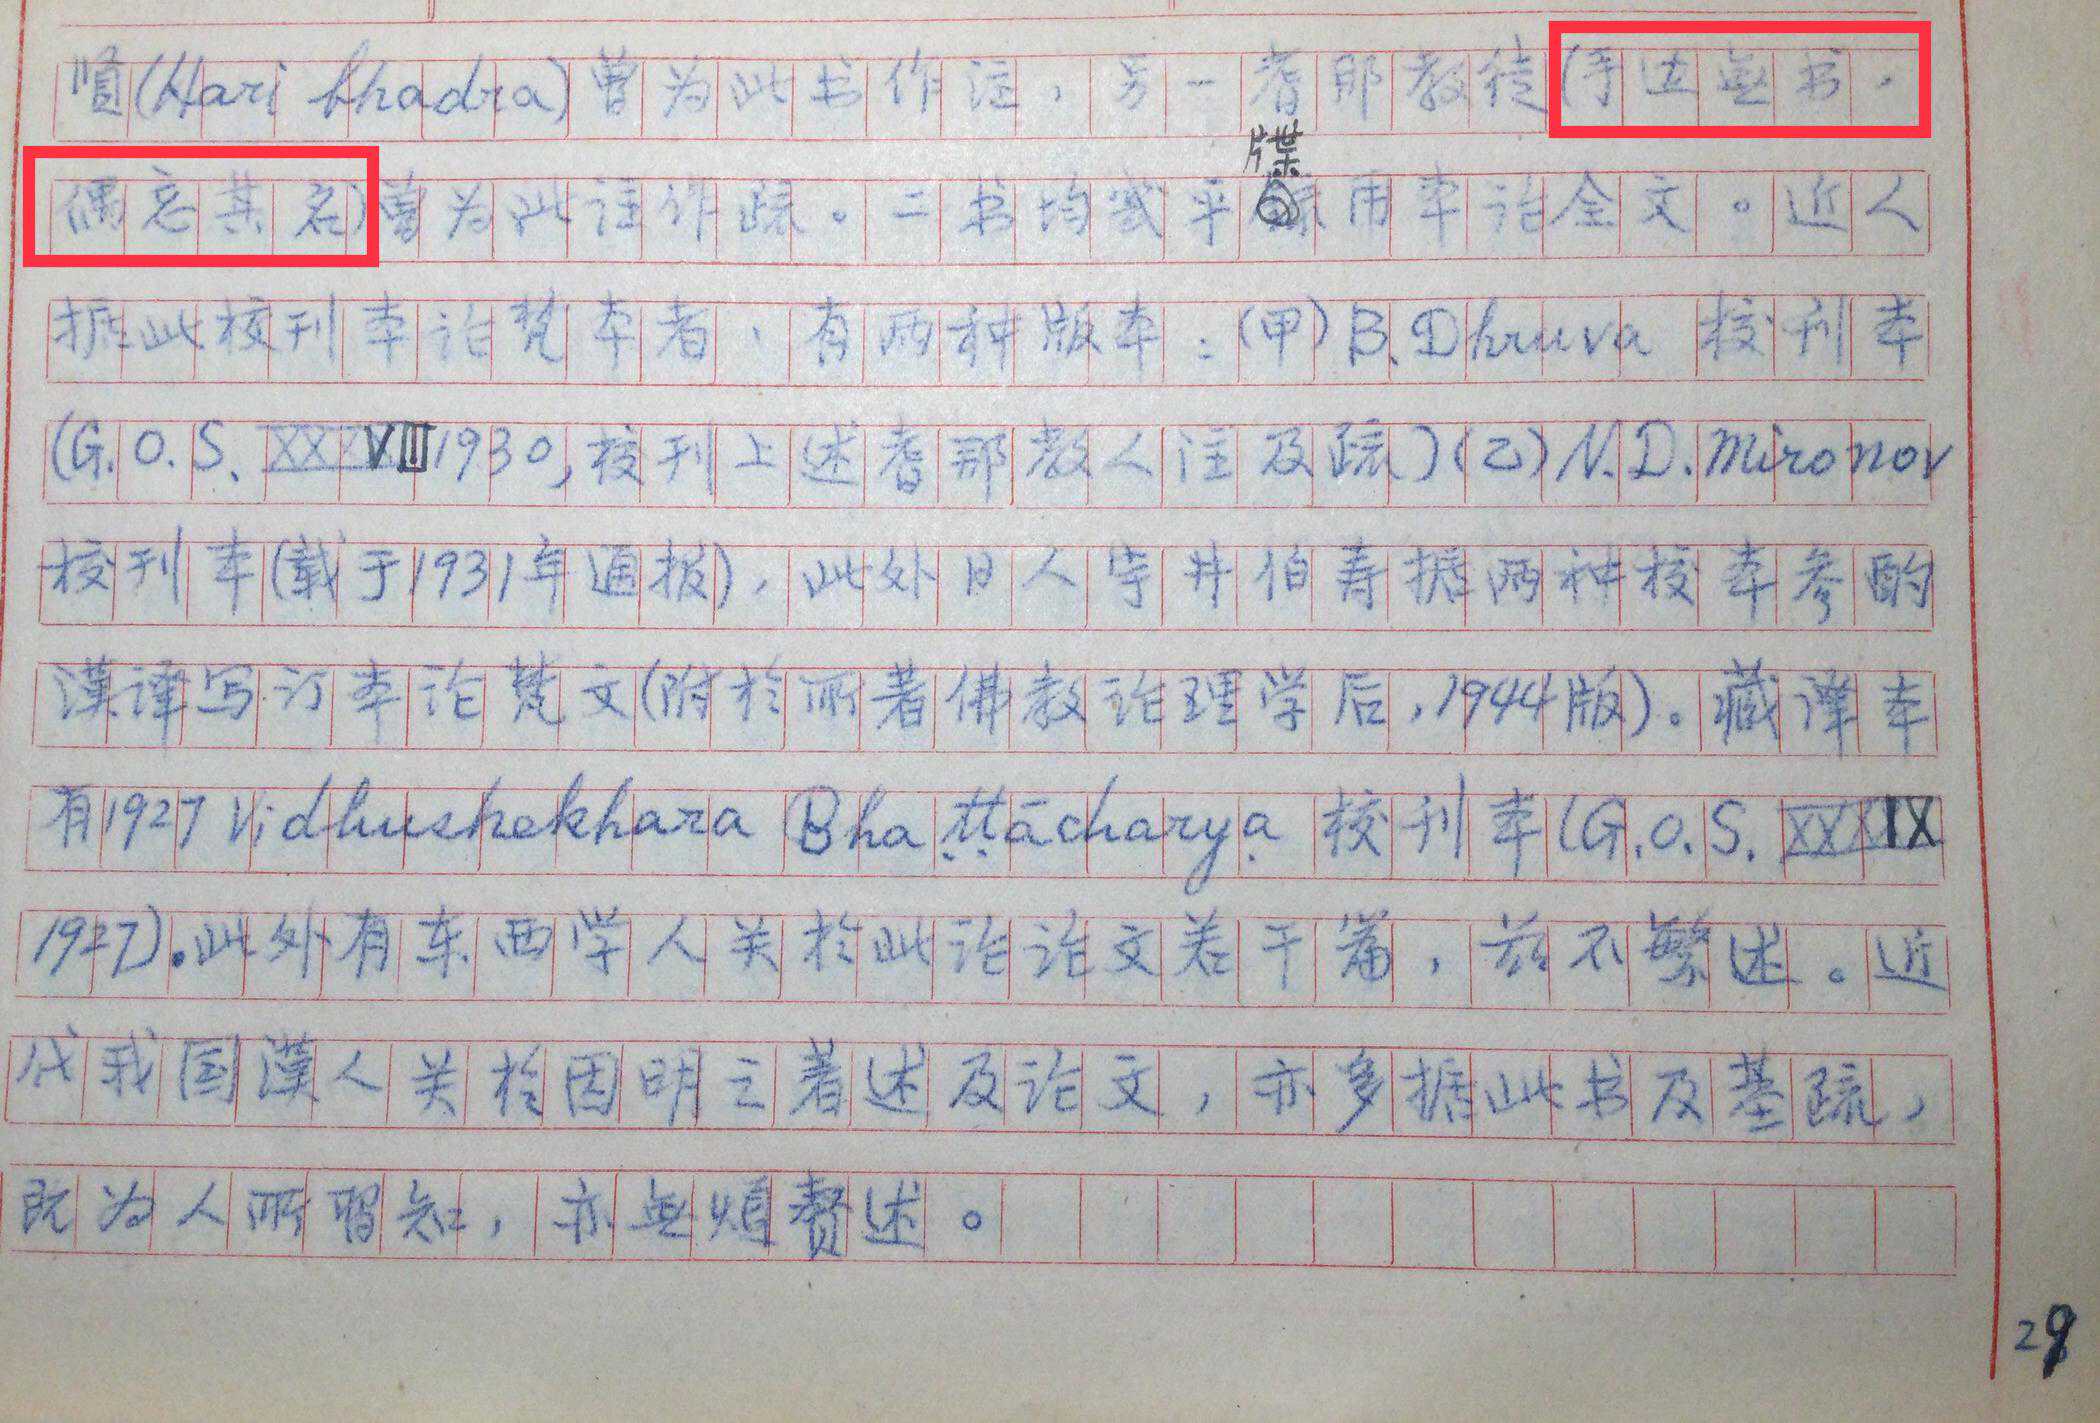 順(Hari bhadra)曽为此书作注，另一耆那教徒(手边無书，
偶忘其名)曽为此注作疏。二书均或平牒用本论全文。近人
据此校刊本论梵本者，有两种版本：(甲)B.Dhruva 校刊本
(G.O.S. XXXVIII 1930,校刊上述耆那教人注及疏)(乙)N.D.Mironov
校刊本(载于1931年通报)，此外日人宇井伯寿据两种校本参酌
漢译写订本论梵文(附於所著佛教论理学后，1944版)。藏译本
有1927 Vidhushekhara Bhaṭṭāchaṛyạ 校刊本(G.O.S. XXXIX
1927)。此外有东西学人关於此论论文若干篇，兹不繁述。近
代我国漢人关於因明之著述及论文，亦多据此书及基疏，
既为人所習知，亦無煩赘述。
29